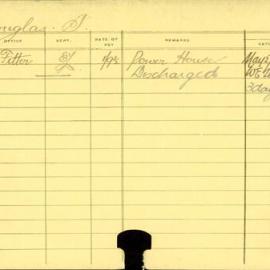 ouglas. J.
OFFICE DEPT. RATE OF PAY REMARKS DATE
Fitter Power House May
Discharged
3 day